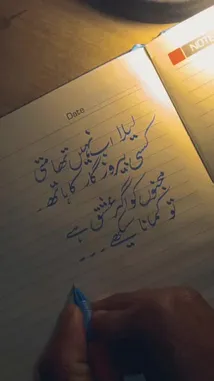 NOTE
Date
لیلا اب نہیں تھامتی
کسی بیروزگار کا ہاتھ۔
مجنوں کو اگر عشق ہے
تو کمانا سیکھے ۔۔۔